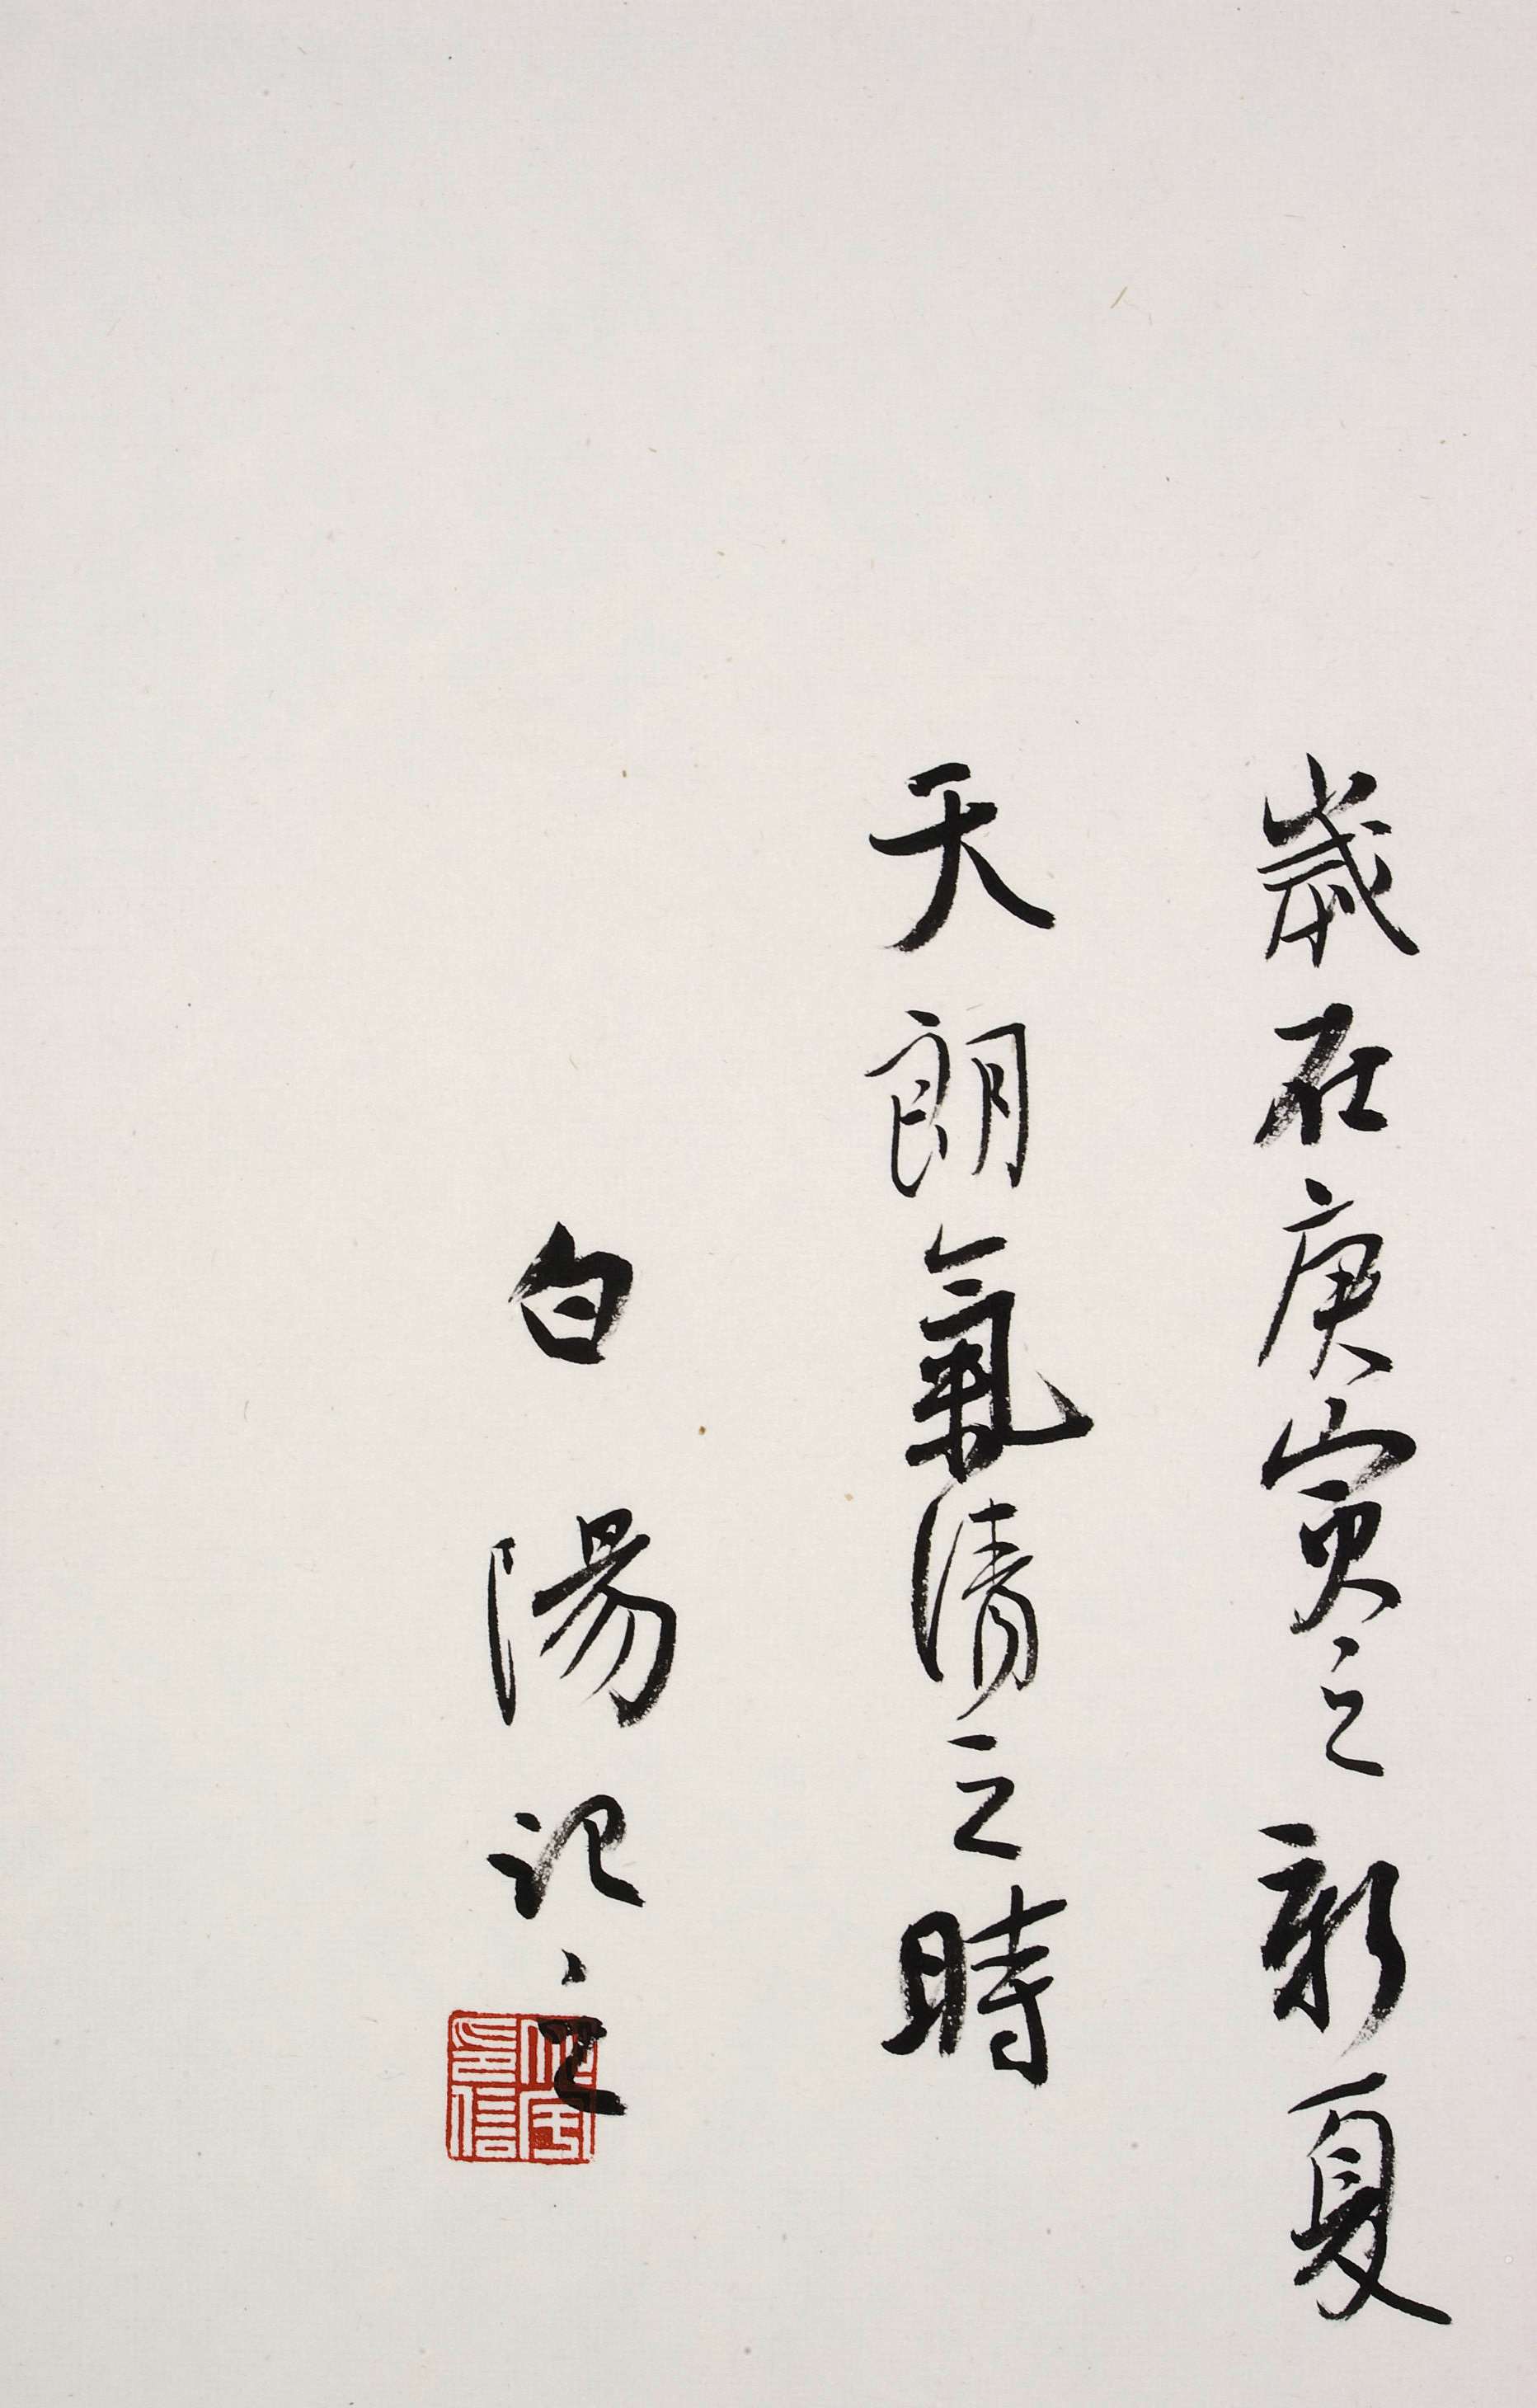 歲在庚寅之新夏
天朗氣清之時
白陽記之